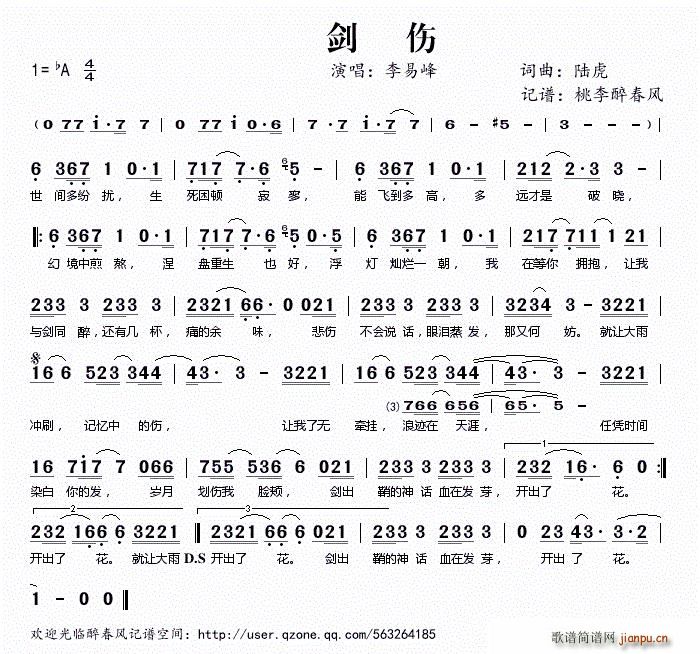 剑 伤
1=♭A 4/4 演唱：李易峰 词曲：陆虎
记谱：桃李醉春风
(0 77 i·7 7 | 0 77 i 0·6 | 7·7 i 7 | 6 - #5 - | 3 - - - ) |
6 367 1 0·1 | 717 7·6 6 5 - | 6 367 1 0·1 | 212 2·3 3 - |
世 间多纷 扰， 生 死困顿 寂 寥， 能 飞到多 高， 多 远才是 破晓，
|: 6 367 1 0·1 | 717 7·6 6 5 0·5 | 6 367 1 0·1 | 217 711 1 21 |
幻 境中煎 熬， 涅 盘重生 也 好， 浮 灯 灿烂一 朝， 我 在等你 拥抱， 让我
233 3 233 3 | 2321 66· 0 021 | 233 3 233 3 | 3234 3 - 3221 |
与剑同 醉，还有几 杯， 痛的余 味， 悲伤 不会说 话，眼泪蒸 发， 那又何 妨。 就让大雨
𝄋
16 6 523 344 | 43· 3 - 3221 | 16 6 523 344 | 43· 3 - 3221 |
(3) 766 656 | 65· 5 -
冲刷， 记忆中 的伤， 让我了无 牵挂， 浪迹在 天涯， 任凭时间
1
16 7i7 7 066 | 755 536 6 021 | 233 3 233 3 | 232 16· 6 0 :|
染白 你的发， 岁月 划伤我 脸颊， 剑出 鞘的神 话 血在发 芽， 开出了 花。
2
232 166 6 3221 || 2321 66· 6 021 | 233 3 233 3 | 0 23 43· 3·2 |
开出了 花。 就让大雨 D.S 开出了 花。 剑出 鞘的神 话 血在发 芽， 开出 了 花。
1 - 0 0 ||
欢迎光临醉春风记谱空间：http://user.qzone.qq.com/563264185
歌谱简谱网 jianpu.cn